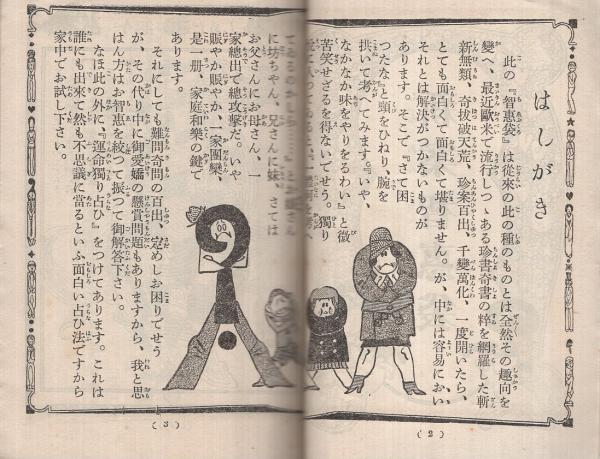 はしがき
此の『智惠袋』は從來の此の種のものとは全然その趣向を
變へ、最近歐米で流行しつゝある珍書奇書の粹を網羅した斬
新無類、奇拔破天荒、珍案百出、千變萬化、一度開いたら、
とても面白くて面白くて堪りません。が、中には容易におい
それとは解決がつかないものが
あります。そこで『さて困
つたな』と頭をひねり、腕を
拱いて考へてみます。『いや、
なかなか味をやりをるわい』と微
苦笑せざるを得ないでせう。獨り
に坊ちやん、兄さんに妹、さては
お父さんにお母さん、一
家總出で總攻擊だ。いや
賑やか賑やか、一家團欒、
是一册、家庭和樂の鍵で
あります。
それにしても難問奇問の百出、定めしお困りでせう
が、その代り中に御愛嬌の懸賞問題もありますから、我と思
はん方はお智惠を絞つて振つて御解答下さい。
なほ此の外に、『運命獨り占ひ』をつけてあります。これは
誰にも出來て然も不思議に當るといふ面白い占ひ法ですから
家中でお試し下さい。
(2)
(3)